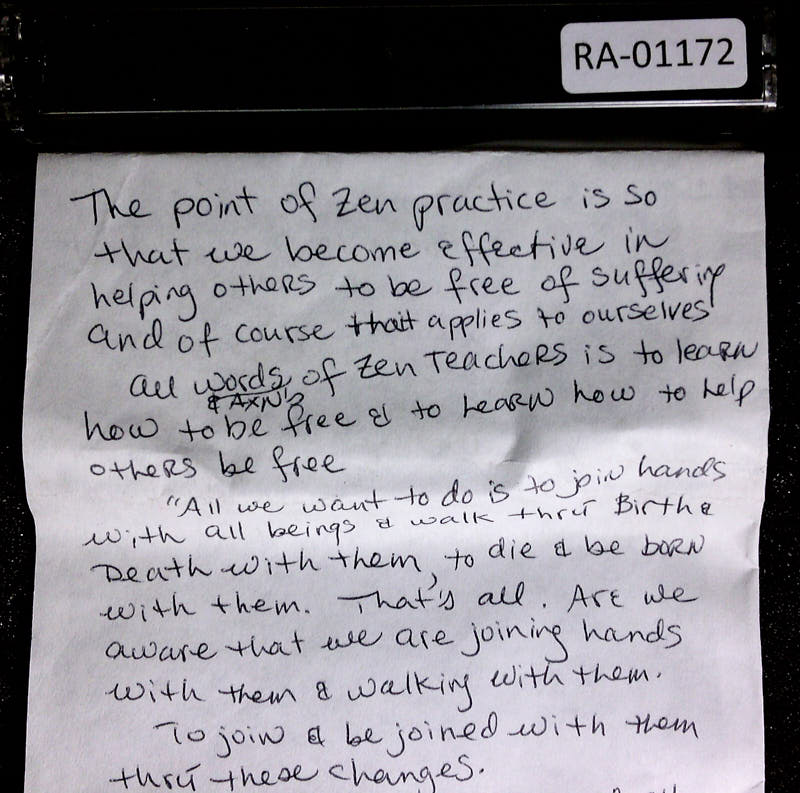 RA-01172
The point of Zen practice is so
that we become effective in
helping others to be free of suffering
and of course that applies to ourselves
all words of Zen Teachers is to learn
how to be free & to learn how to help
others be free
"All we want to do is to join hands
with all beings & walk thru Birth &
Death with them, to die & be born
with them. That's all. Are we
aware that we are joining hands
with them & walking with them.
To join & be joined with them
thru these changes.